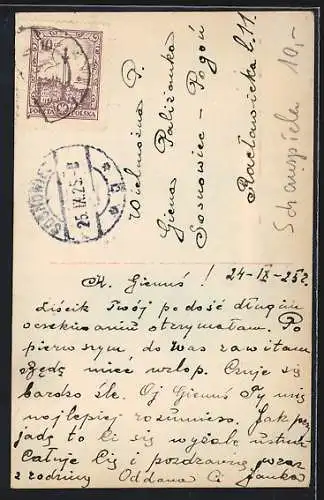 10
POCZTA POLSKA
SOSNOWIEC
25.IX.25
Wielmożna P.
Giena Paliżanka
Sosnowiec - Pogoń
Racławicka L.11.
Schauspiele 10,-
K. Gienuś! 24-IX-25r.
Liścik Twój po dość długim
oczekiwaniu otrzymałam. Po
pierwszym do Was zawitam
będę mieć urlop. Czuję się
bardzo źle. Oj Gienuś Ty mię
najlepiej rozumiesz. Jak przy
jadę to Ci się wyżalę
Całuję Cię i pozdrawiam wraz
z rodziną Oddana Ci Janka